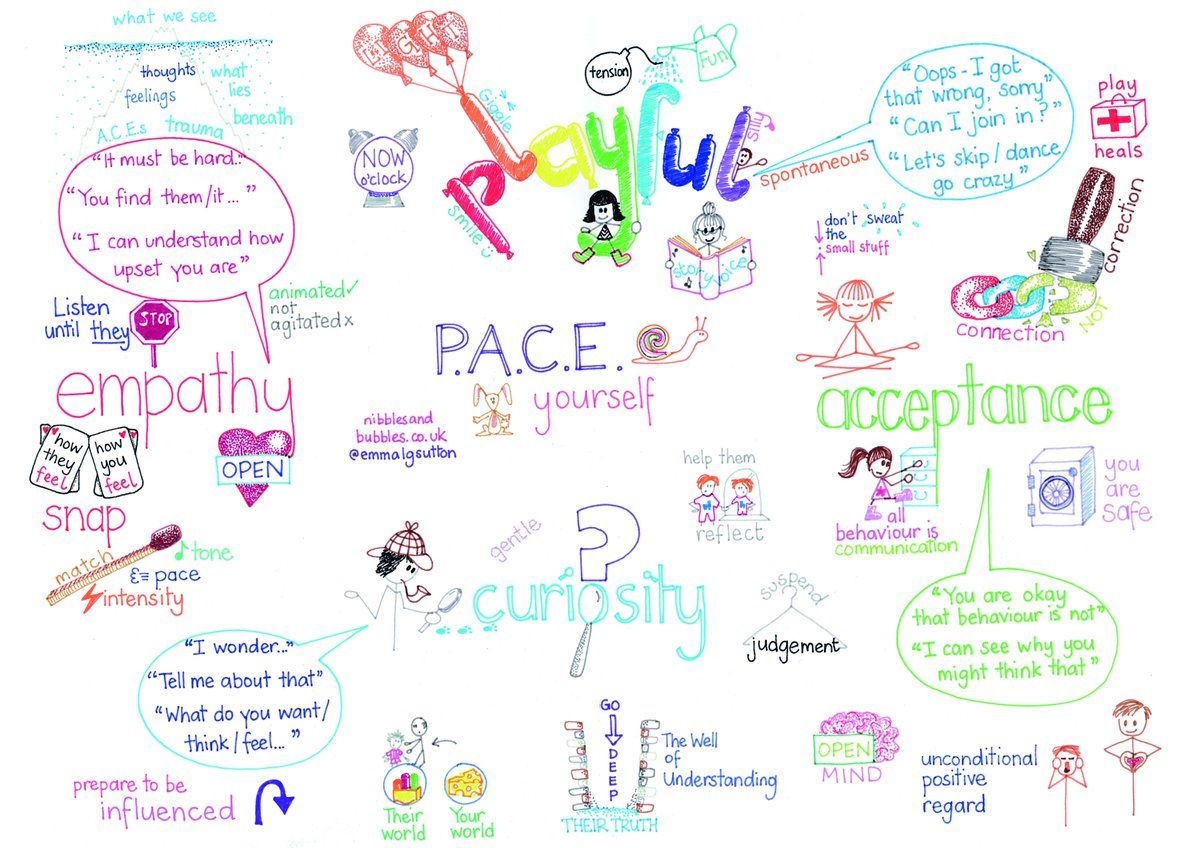 what we see
thoughts
feelings
what
lies
beneath
A.C.Es trauma
"It must be hard..."
"You find them/it..."
"I can understand how
upset you are"
Listen
until they
STOP
animated ✓
not
agitated x
empathy
how
they
feel
how
you
feel
snap
OPEN
match
tone
pace
intensity
LIGHT
Giggle
NOW
o'clock
playful
smile
tension
Fun
silly
spontaneous
story voice
"Oops - I got
that wrong, sorry"
"Can I join in?"
"Let's skip / dance
go crazy"
play
heals
don't sweat
the
small stuff
correction
connection
NOT
P.A.C.E.
yourself
nibblesand
bubbles.co.uk
@emmalgsutton
acceptance
help them
reflect
all
behaviour is
communication
you
are
safe
"You are okay
that behaviour is not"
"I can see why you
might think that"
gentle
?
curiosity
suspend
judgement
"I wonder..."
"Tell me about that"
"What do you want/
think/feel..."
prepare to be
influenced
Their
world
Your
world
GO
DEEP
The Well
of
Understanding
THEIR TRUTH
OPEN
MIND
unconditional
positive
regard